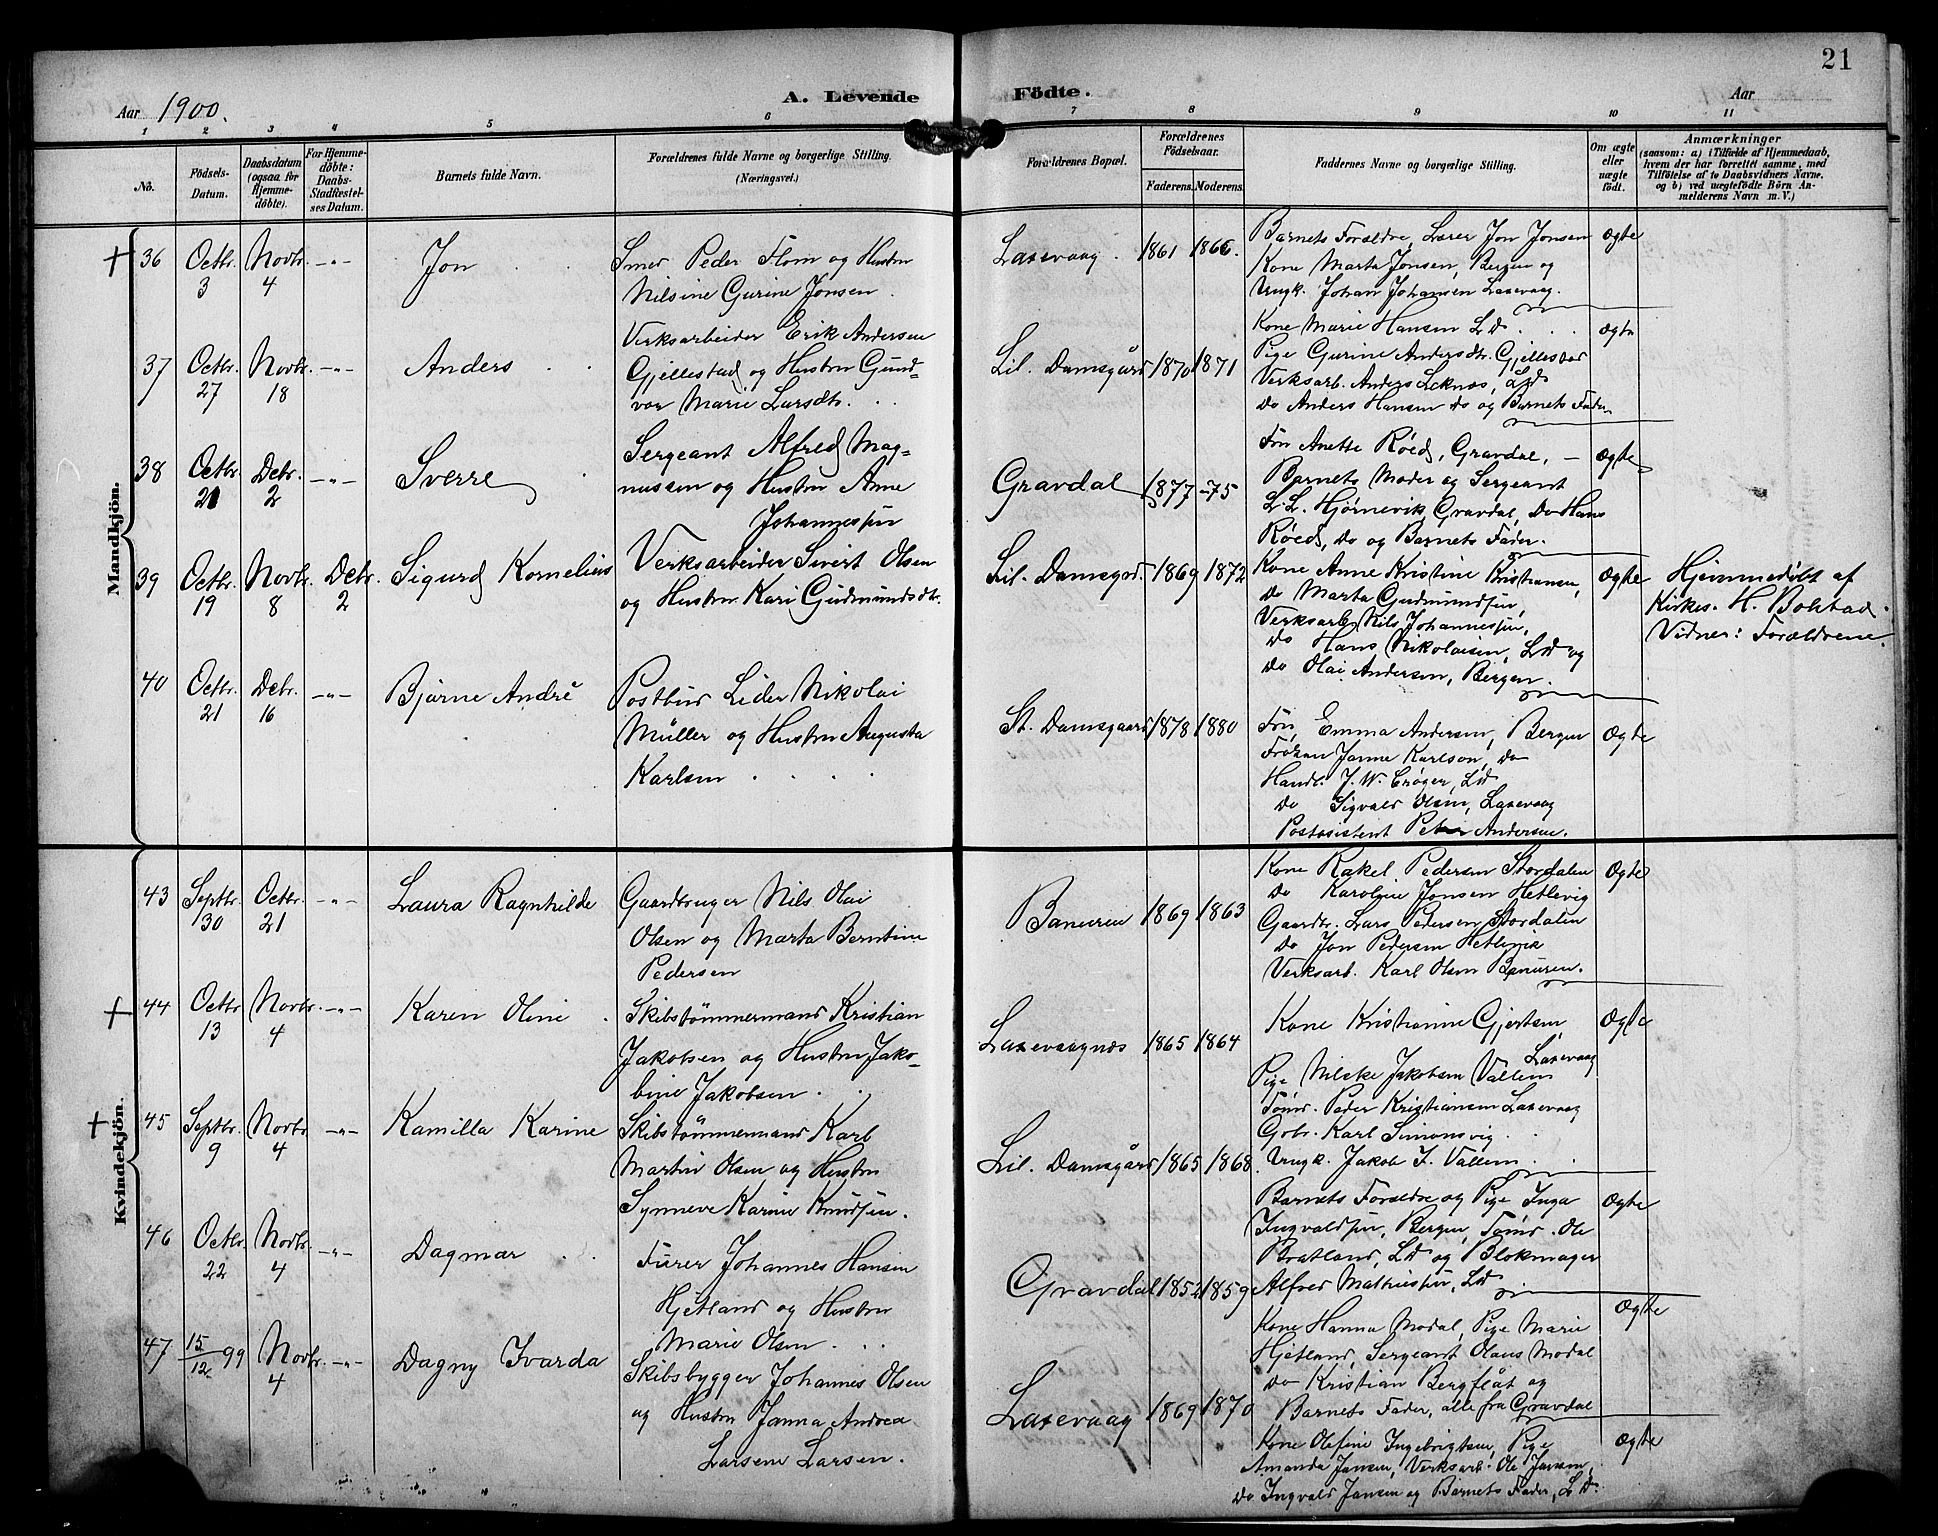 21
Aar 1900.
A. Levende Fødte.
Aar
1 2 3 4 5 6 7 8 9 10 11
No.
Fødsels-
Datum.
Daabsdatum
(ogsaa for
Hjemme-
døbte).
For Hjemme-
døbte:
Daabs-
Stadfæstel-
ses Datum.
Barnets fulde Navn.
Forældrenes fulde Navne og borgerlige Stilling.
(Næringsvei.)
Forældrenes Bopæl.
Forældrenes
Fødselsaar.
Faderens. Moderens.
Faddernes Navne og borgerlige Stilling.
Om ægte
eller
uægte
født.
Anmærkninger
(saasom: a) i Tilfælde af Hjemmedaab,
hvem der har forrettet samme, med
Tilføielse af to Daabsvidners Navne,
og b) ved uægtefødte Børn An-
melderens Navn m. V.)
Mandkjön.
+ 36 Octbr. 3 Novbr. 4 -"- Jon
Smed Peder Flom og Hustru
Nilsine Gurine Jonsen
Laxevaag. 1861 1866.
Barnets Forældre, Lærer Jon Jonsen
Kone Marta Jonsen, Bergen og
Ungk. Johan Johansen Laxevaag.
Ægte
37 Octbr. 27 Novbr. 18 -"- Anders
Verksarbeider Erik Andersen
Gjellestad og Hustru Gund-
vor Marie Larsdtr.
Lil. Damsgård 1870 1871
Kone Marie Hansen Ld
Pige Gurine Andersdtr. Gjellestad
Verksarb. Anders Leknæs, Ld
Do Anders Hansen do og Barnets Fader
Ægte
38 Octbr. 21 Debr. 2 -"- Sverre
Sergeant Alfred Mag-
nussen og Hustru Anne
Johannesen
Gravdal 1877 -75
Fru Anette Röed, Gravdal, -
Barnets Moder og Sergeant
L. L. Hjørnevik, Gravdal, Do Hans
Röed, do og Barnets Fader.
Ægte
39 Octbr. 19 Novbr. 8 Debr. 2 Sigurd Kornelius
Verksarbeider Sivert Olsen
og Hustru Kari Gudmundsdtr.
Lil. Damsgrd. 1869 1872
Kone Anne Kristine Kristiansen,
Do Marta Gudmundsen,
Verksarb. Nils Johannesen,
do Hans Nikolaisen, Ld og
do Olai Andersen, Bergen.
Ægte
Hjemmedöbt af
Kirkes. H. Bolstad.
Vidner: Forældrene
40 Octbr. 21 Debr. 16 -"- Bjarne André
Postbud Lider Nikolai
Müller og Hustru Augusta
Karlsen
St. Damsgaard 1878 1880
Fru Emma Andersen, Bergen
Frøken Janne Karlson, do
Handl. J. W. Crøger, Ld
do Sigvald Olsen, Laxevaag
Postasistent Peter Andersen.
Ægte
Kvindekjön.
43 Septbr. 30 Octbr. 21 -"- Laura Ragnhilde
Gaardbruger Nils Olai
Olsen og Marta Berntine
Pedersen
Banuren 1869 1863
Kone Rakel Pedersen Stordalen
Do Karoline Jonsen Hetlevig
Gaardbr. Lars Pedersen Stordalen
do Jon Pedersen Hetlevik
Verksarb. Karl Olsen Banuren.
Ægte
+ 44 Octbr. 13 Novbr. 4 -"- Karen Oline
Skibstømmermand Kristian
Jakobsen og Hustru Jako-
bine Jakobsen
Laxevaagnæs 1865 1864
Kone Kristianne Gjertsen,
Laxevaag
Pige Nilske Jakobsen Vallem
Tömr. Peder Kristiansen Laxevaag
Gbr. Karl Simonsvig
Ungk. Jakob J. Vallem
Ægte
+ 45 Septbr. 9 Novbr. 4 -"- Kamilla Karine
Skibstømmermand Karl
Martin Olsen og Hustru
Synneve Karine Knudsen.
Lil. Damsgård 1865 1868
Barnets Forældre og Pige Inga
Ingvaldsen, Bergen, Tömr. Ole
Bratland, Ld og Blokmager
Alfred Mathiesen, Ld
Ægte
46 Octbr. 22 Novbr. 4 -"- Dagmar
Furer Johannes Hansen
Hjetland og Hustru
Marie Olsen
Gravdal 1852 1859
Kone Hanna Modal, Pige Marie
Hjetland, Sergeant Olaus Modal
Do Kristian Bergflåt og
Barnets Fader, alle fra Gravdal
Ægte
47 15/12 99 Novbr. 4 -"- Dagny Ivarda
Skibsbygger Johannes Olsen
og Hustru Janna Andrea
Larsene Larsen.
Laxevaag 1869 1870
Kone Olefine Ingebrigtsen, Pige
Amanda Jansen, Verksarb. Ole Jansen,
Do Ingvald Jansen og Barnets Fader, Ld
Ægte